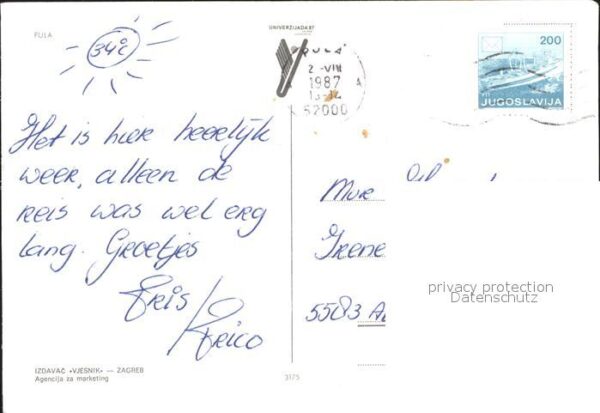 PULA
34°c
Het is hier heerlijk
weer, alleen de
reis was wel erg
lang. Groetjes
Iris
Krico
IZDAVAČ «VJESNIK» — ZAGREB
Agencija za marketing
3175
UNIVERZIJADA 87
PULA
2-VIII
1987
52000
200
JUGOSLAVIJA
Irene
privacy protection
Datenschutz